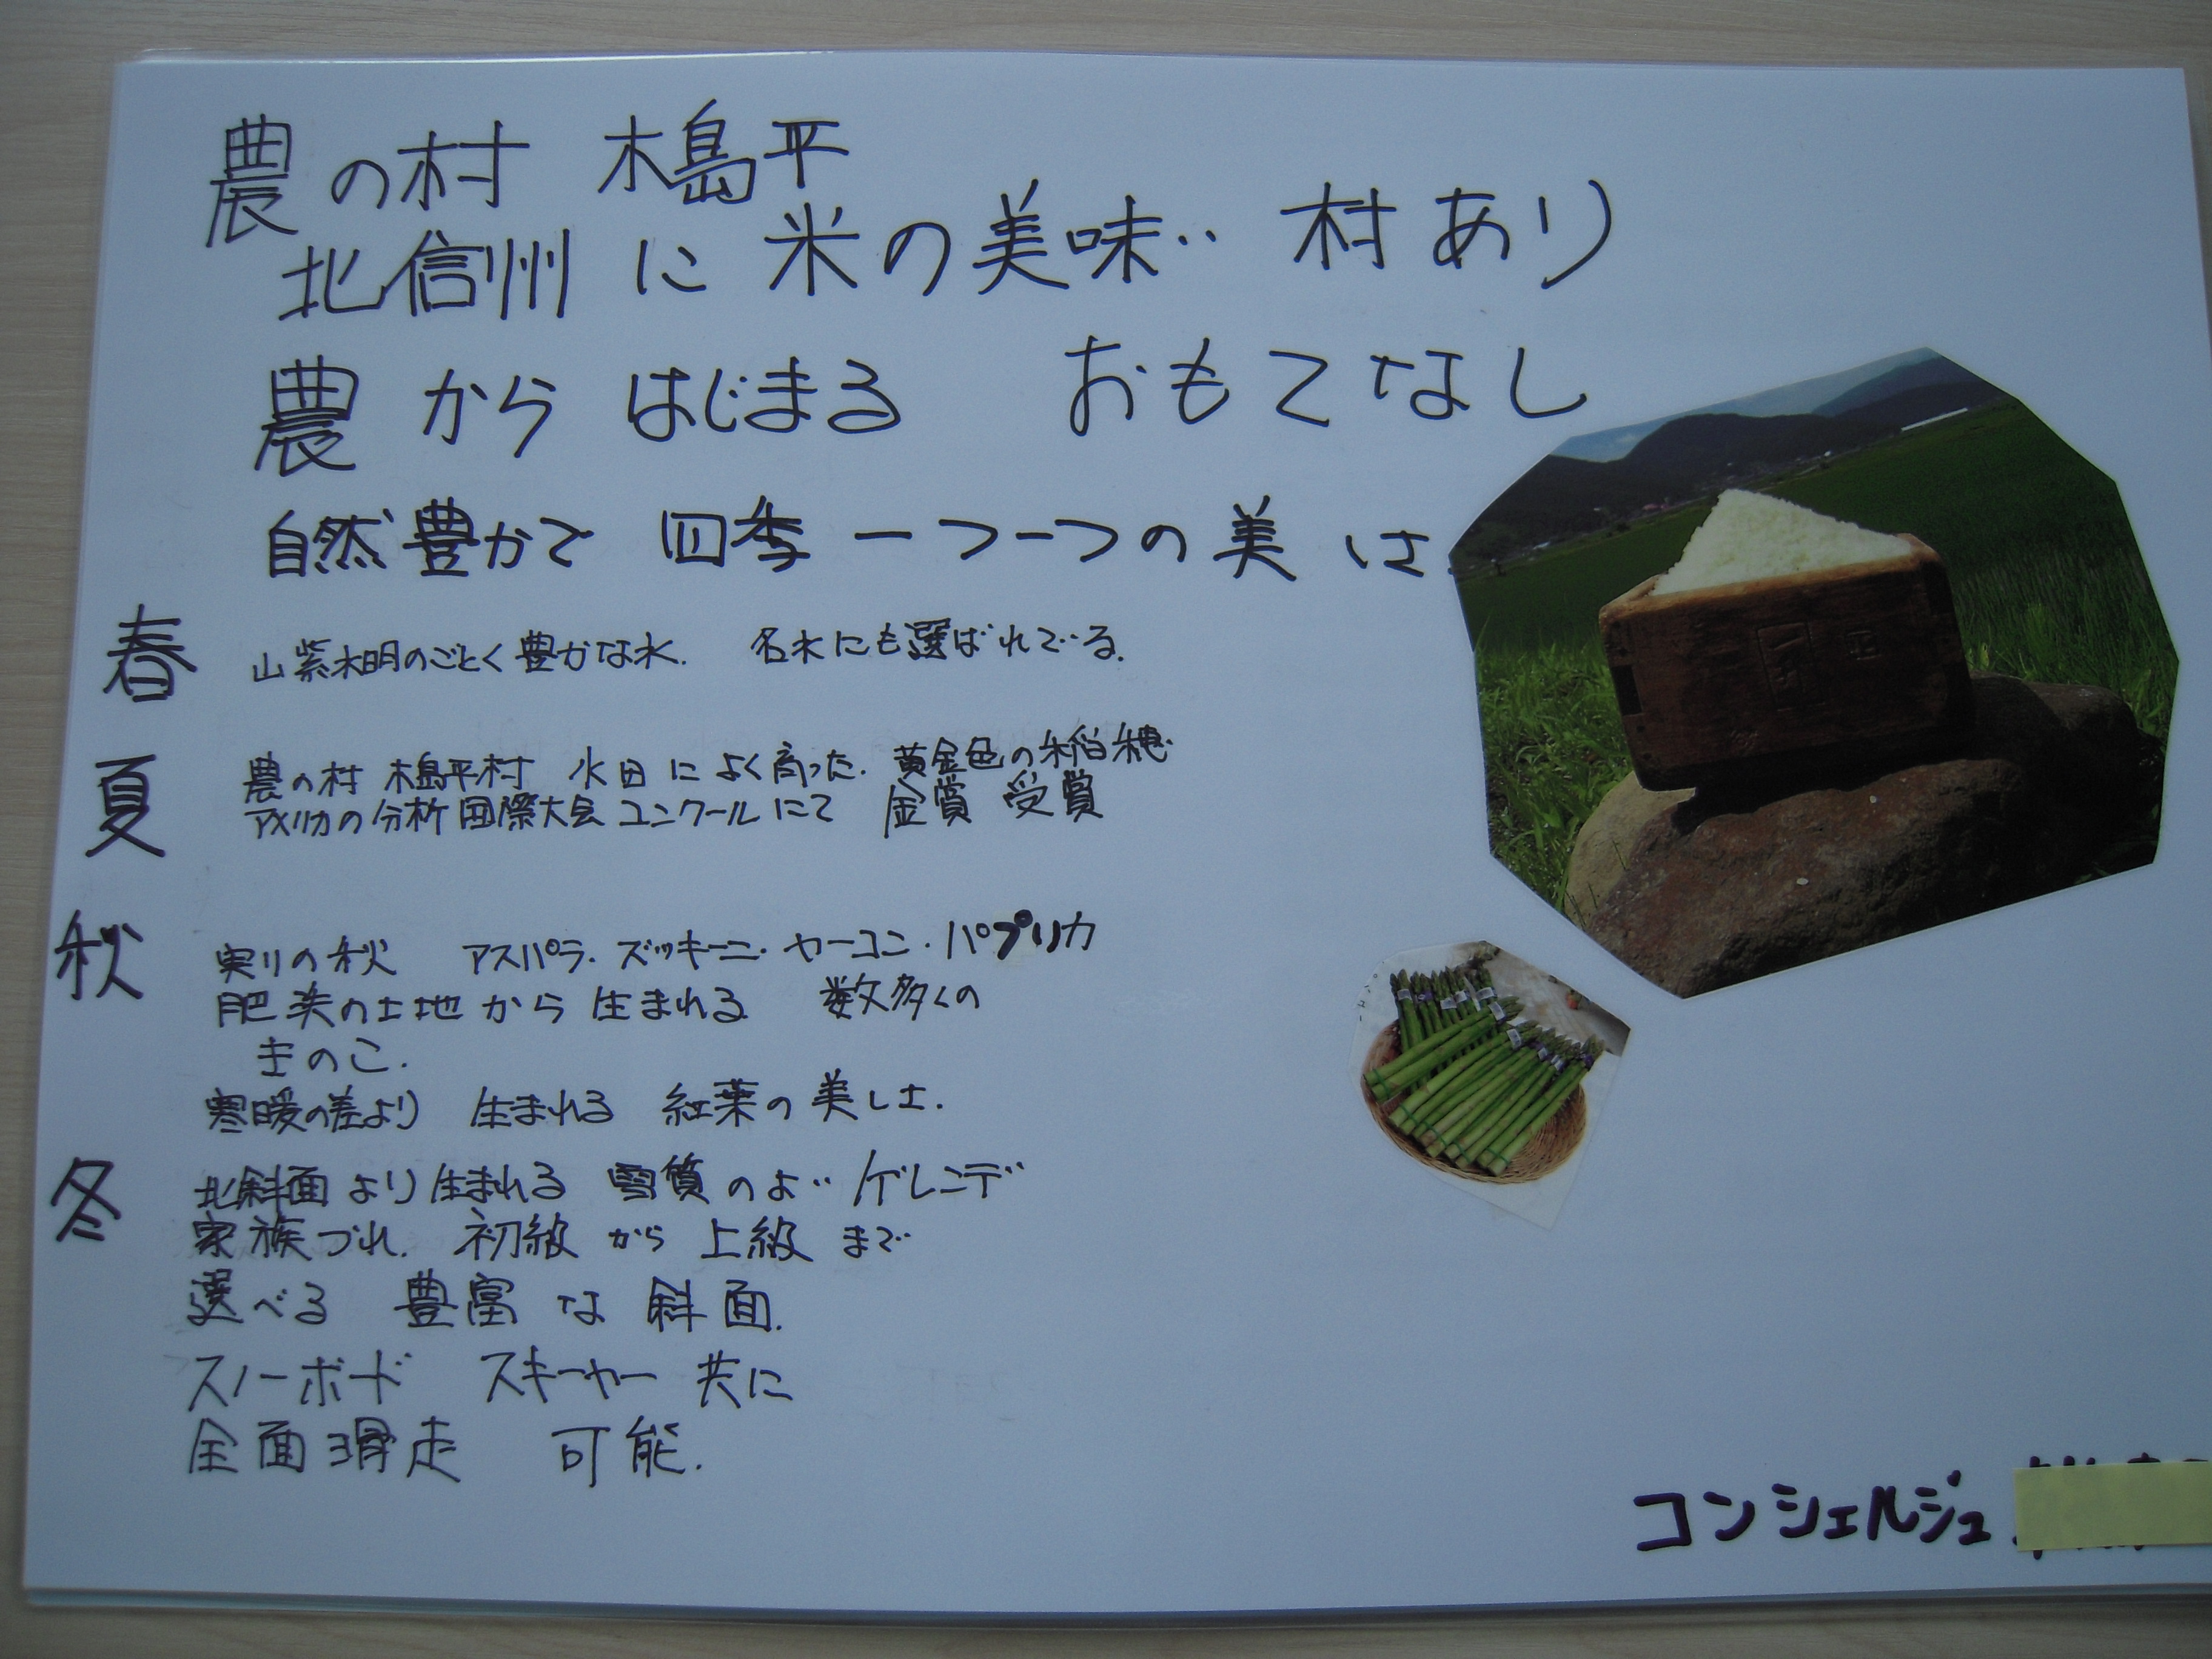 農の村 木島平
北信州 に 米の美味い 村 あり
農 から はじまる おもてなし
自然豊かで 四季 一つ一つの 美 は
春 山紫水明のごとく豊かな水. 名水にも選ばれている.
夏 農の村 木島平村 水田 に よく育った. 黄金色の稲穂
アメリカの分析国際大会 コンクール にて 金賞 受賞
秋 実りの秋 アスパラ. ズッキーニ. ヤーコン. パプリカ
肥沃の土地 から 生まれる 数多くの
きのこ.
寒暖の差より 生まれる 紅葉の 美しさ.
冬 北斜面 より 生まれる 雪質 のよい ゲレンデ
家族づれ. 初級 から 上級 まで
選べる 豊富 な 斜面.
スノーボード スキーヤー 共に
全面滑走 可能.
コンシェルジュ